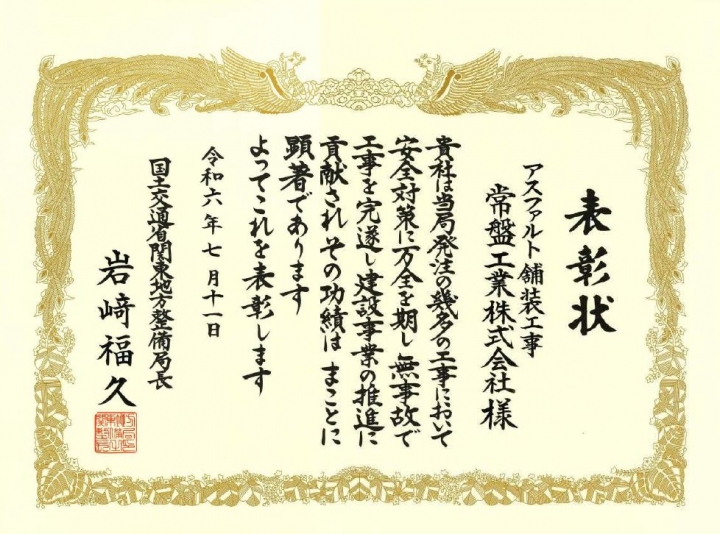 表彰状
アスファルト舗装工事
常盤工業株式会社様
貴社は当局発注の幾多の工事において
安全対策に万全を期し無事故で
工事を完遂し建設事業の推進に
貢献されその功績はまことに
顕著であります
よってこれを表彰します
令和六年七月十一日
国土交通省関東地方整備局長
岩﨑福久